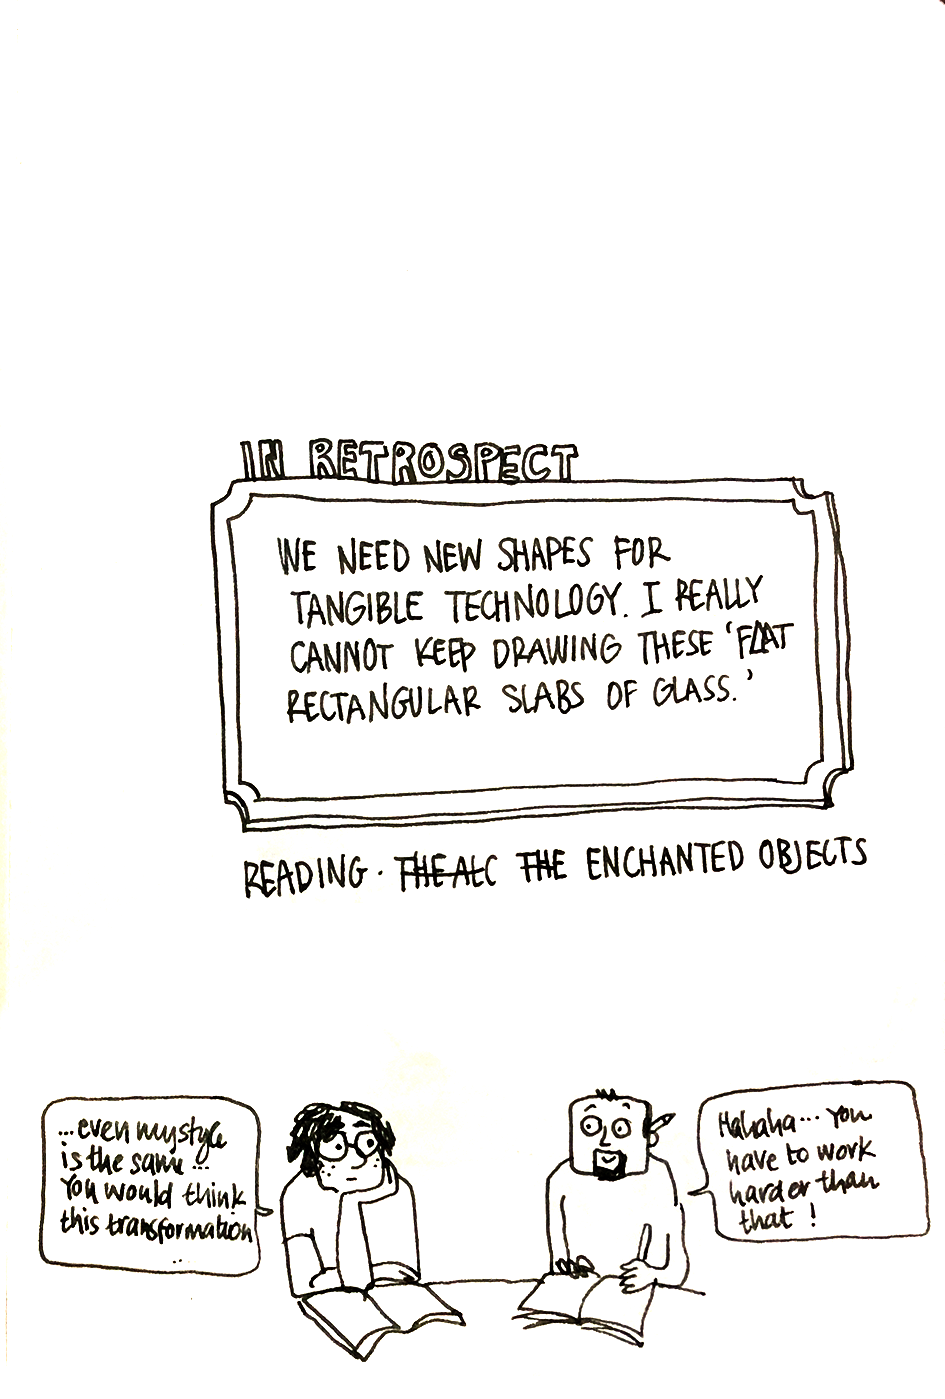 IN RETROSPECT
WE NEED NEW SHAPES FOR
TANGIBLE TECHNOLOGY. I REALLY
CANNOT KEEP DRAWING THESE 'FLAT
RECTANGULAR SLABS OF GLASS.'
READING · THE ALC THE ENCHANTED OBJECTS
...even my style
is the same ...
You would think
this transformation
...
Hahaha... You
have to work
harder than
that !